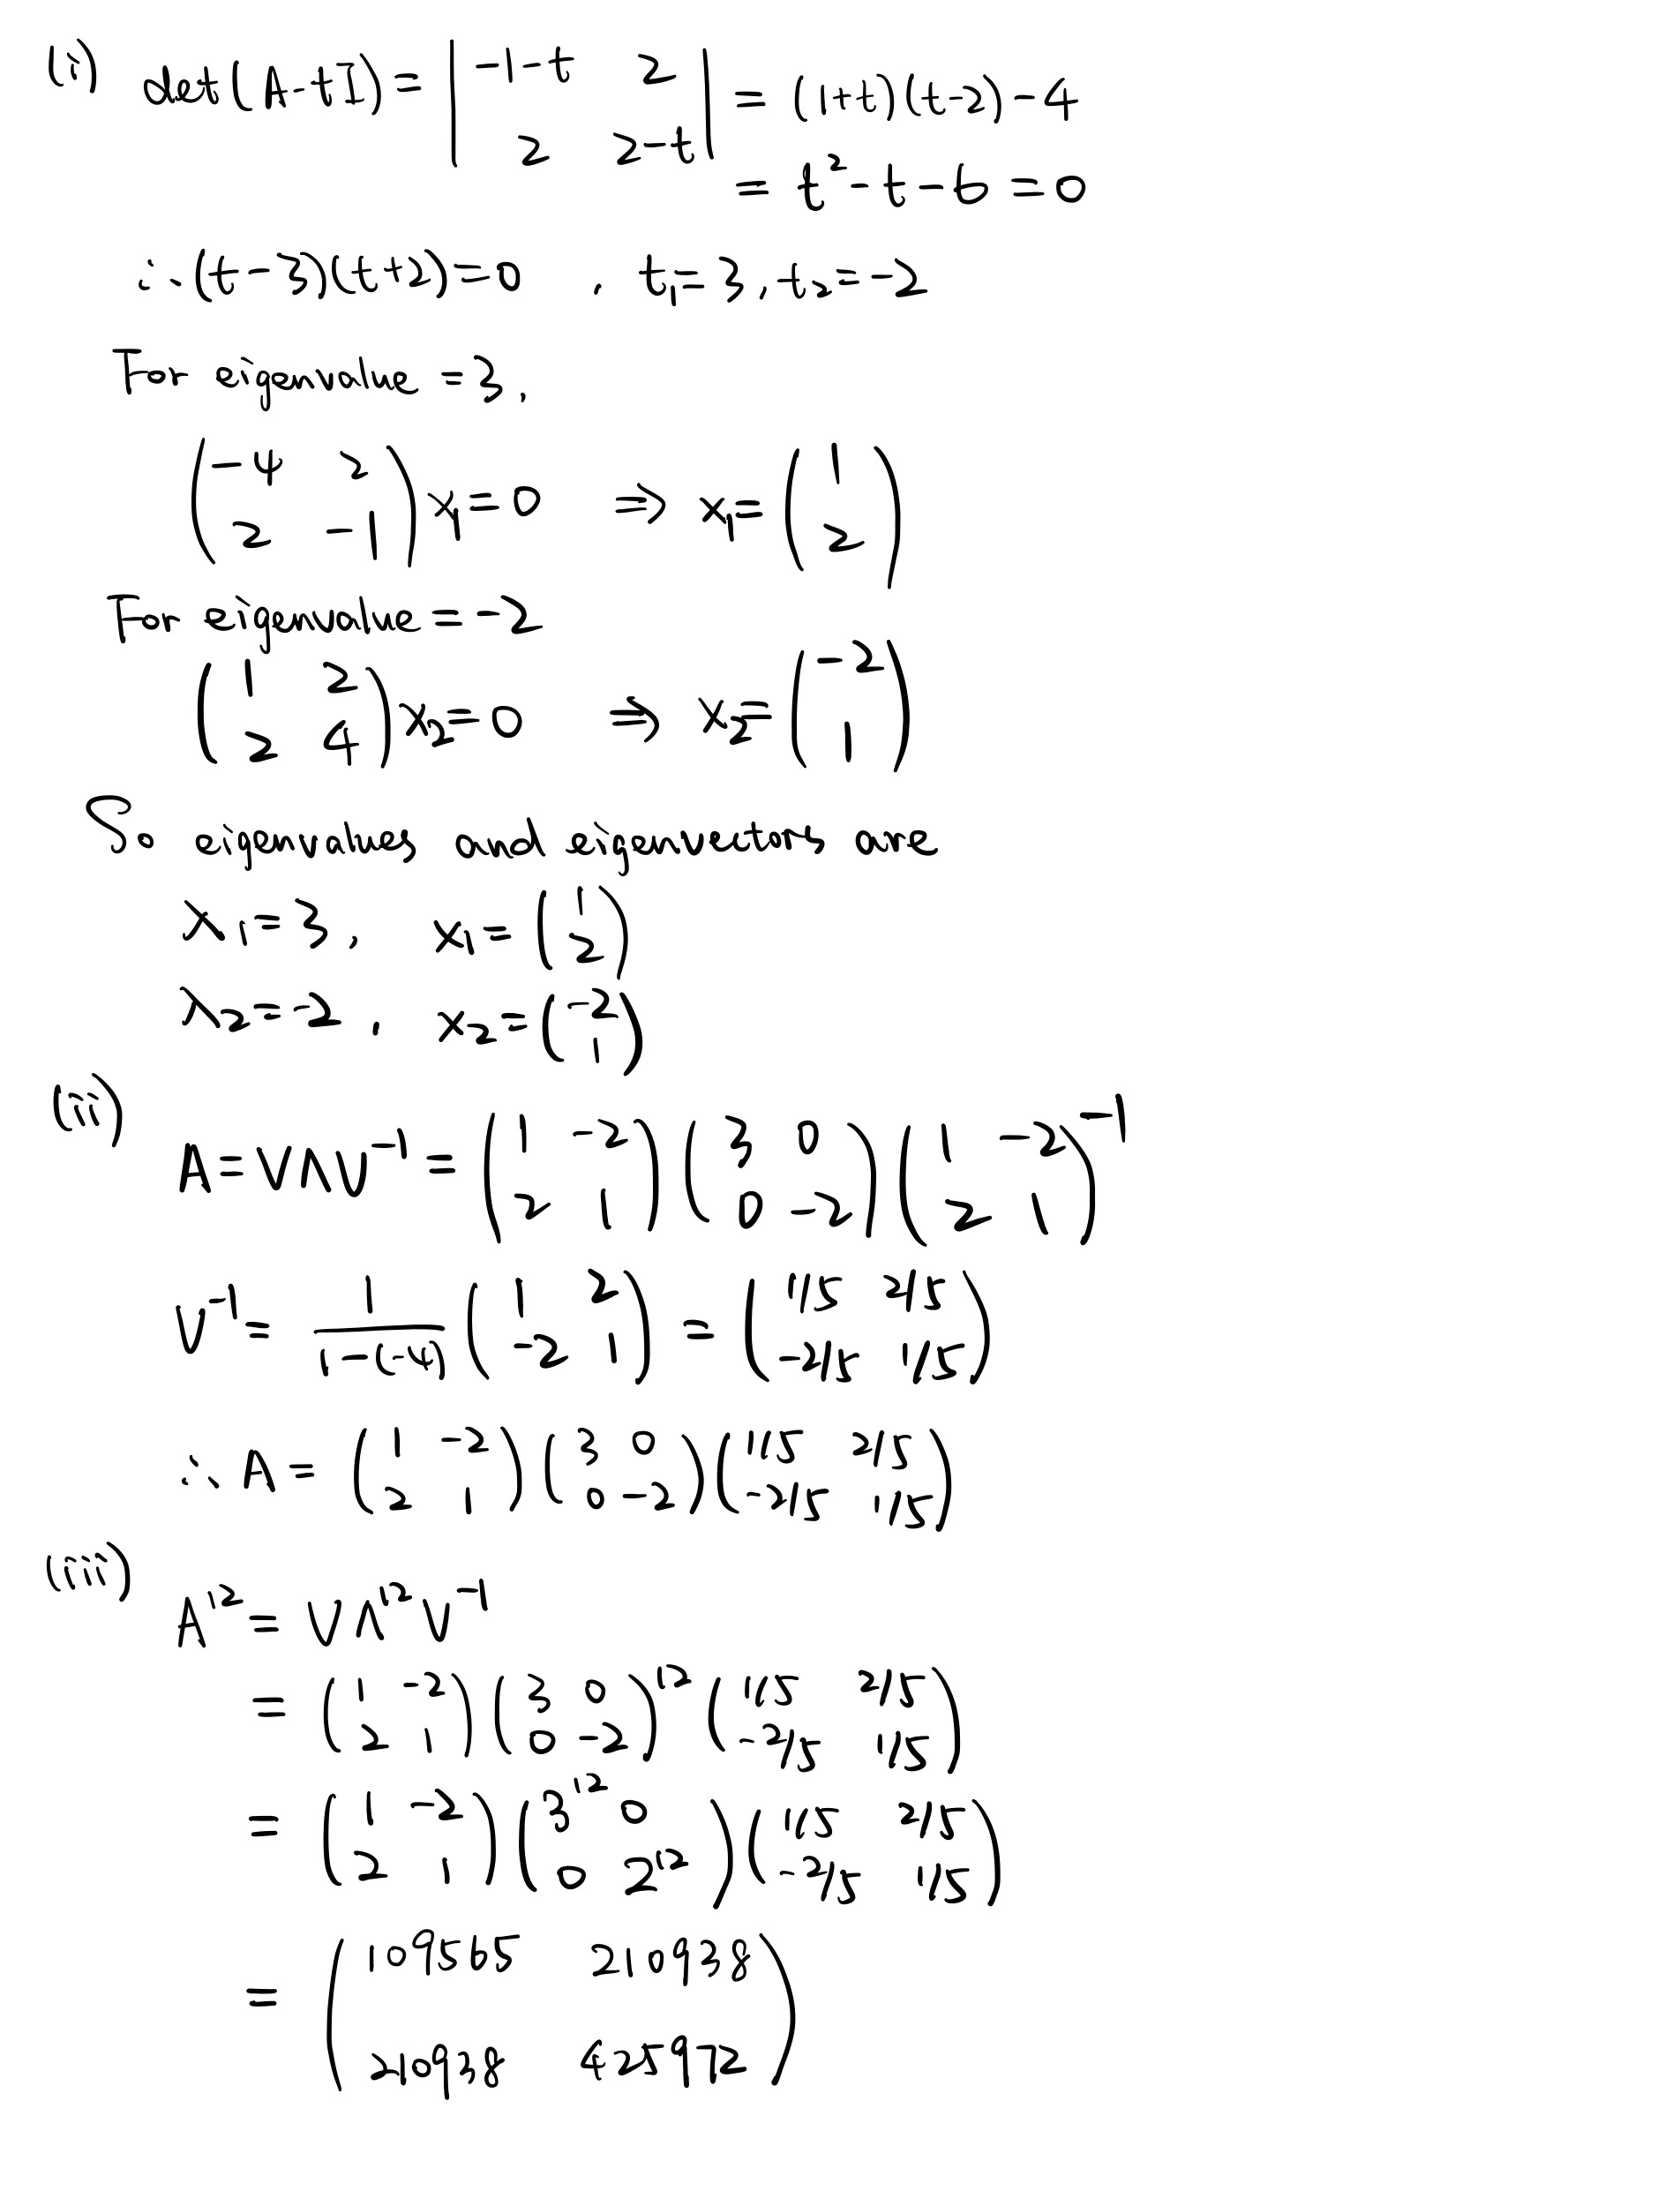 (i) det(A-tI) = | -1-t 2 | = (1+t)(t-2)-4
| 2 2-t |
= t²-t-6=0
∴ (t-3)(t+2)=0 , t₁=3, t₂=-2
For eigenvalue =3,
( -4 2 ) x₁=0 ⇒ x₁= ( 1 )
( 2 -1 ) ( 2 )
For eigenvalue = -2
( 1 2 ) x₂=0 ⇒ x₂= ( -2 )
( 2 4 ) ( 1 )
So eigenvalues and eigenvectors are
λ₁=3, x₁= ( 1 )
( 2 )
λ₂=-2, x₂= ( -2 )
( 1 )
(ii)
A=VΛV⁻¹ = ( 1 -2 ) ( 3 0 ) ( 1 -2 )⁻¹
( 2 1 ) ( 0 -2 ) ( 2 1 )
V⁻¹ = 1/(1-(-4)) ( 1 2 ) = ( 1/5 2/5 )
( -2 1 ) ( -2/5 1/5 )
∴ A= ( 1 -2 ) ( 3 0 ) ( 1/5 2/5 )
( 2 1 ) ( 0 -2 ) ( -2/5 1/5 )
(iii)
A¹² = VΛ¹²V⁻¹
= ( 1 -2 ) ( 3 0 )¹² ( 1/5 2/5 )
( 2 1 ) ( 0 -2 ) ( -2/5 1/5 )
= ( 1 -2 ) ( 3¹² 0 ) ( 1/5 2/5 )
( 2 1 ) ( 0 2¹² ) ( -2/5 1/5 )
= ( 109565 210938 )
( 210938 425972 )